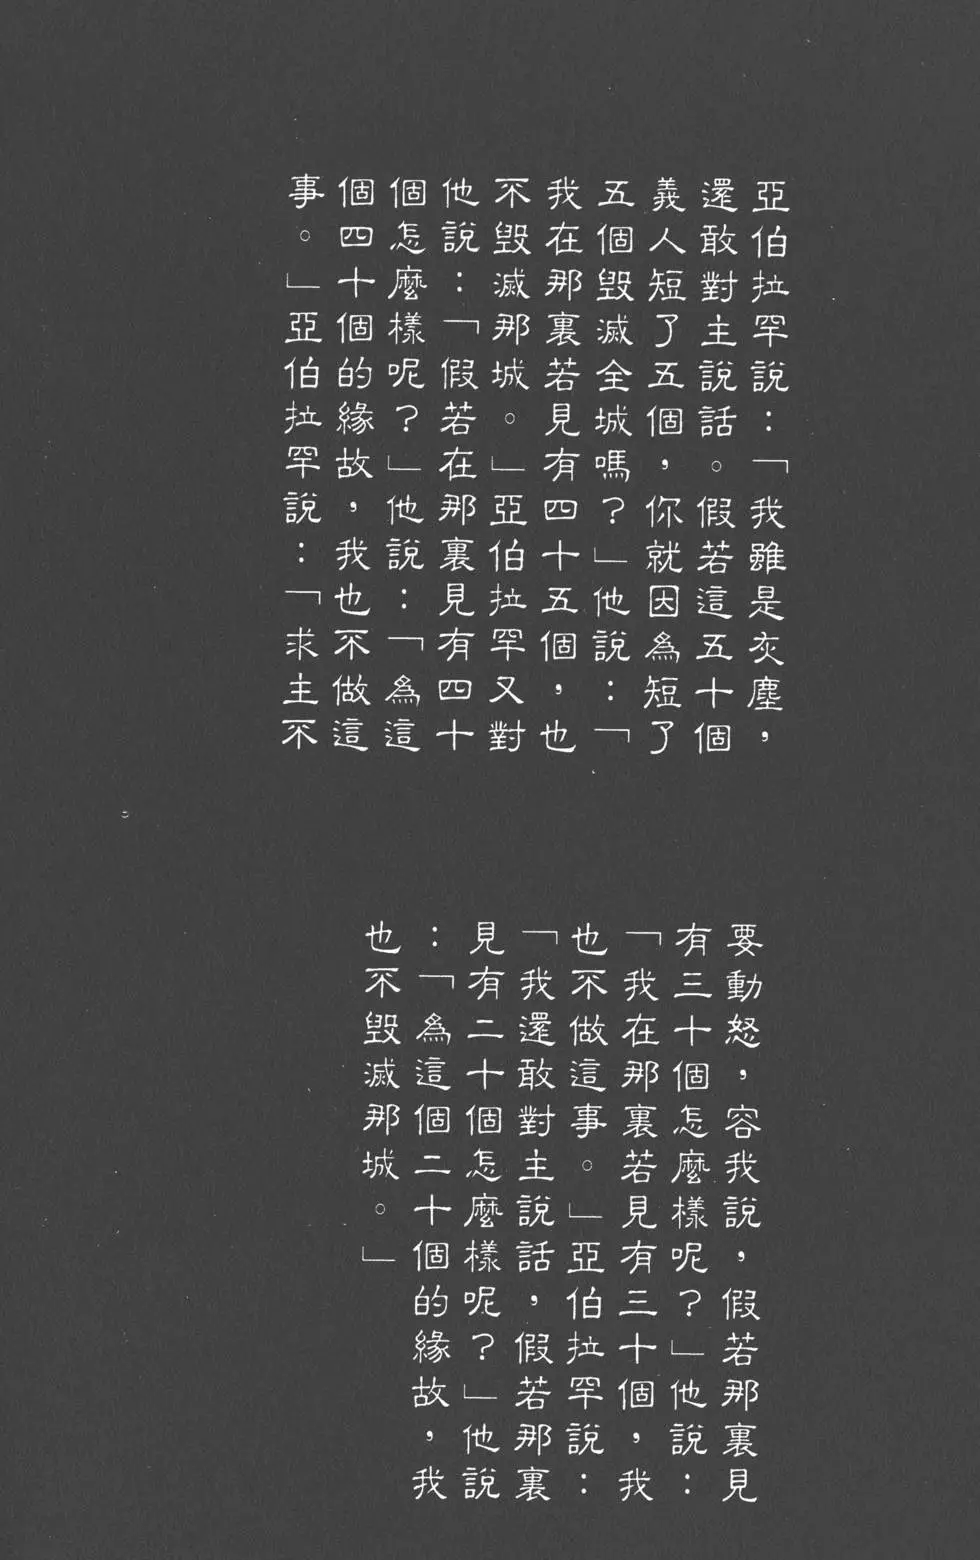 亞伯拉罕說：「我雖是灰塵，
還敢對主說話。假若這五十個
義人短了五個，你就因為短了
五個毀滅全城嗎？」他說：「
我在那裏若見有四十五個，也
不毀滅那城。」亞伯拉罕又對
他說：「假若在那裏見有四十
個怎麼樣呢？」他說：「為這
個四十個的緣故，我也不做這
事。」亞伯拉罕說：「求主不
要動怒，容我說，假若那裏見
有三十個怎麼樣呢？」他說：
「我在那裏若見有三十個，我
也不做這事。」亞伯拉罕說：
「我還敢對主說話，假若那裏
見有二十個怎麼樣呢？」他說
：「為這個二十個的緣故，我
也不毀滅那城。」